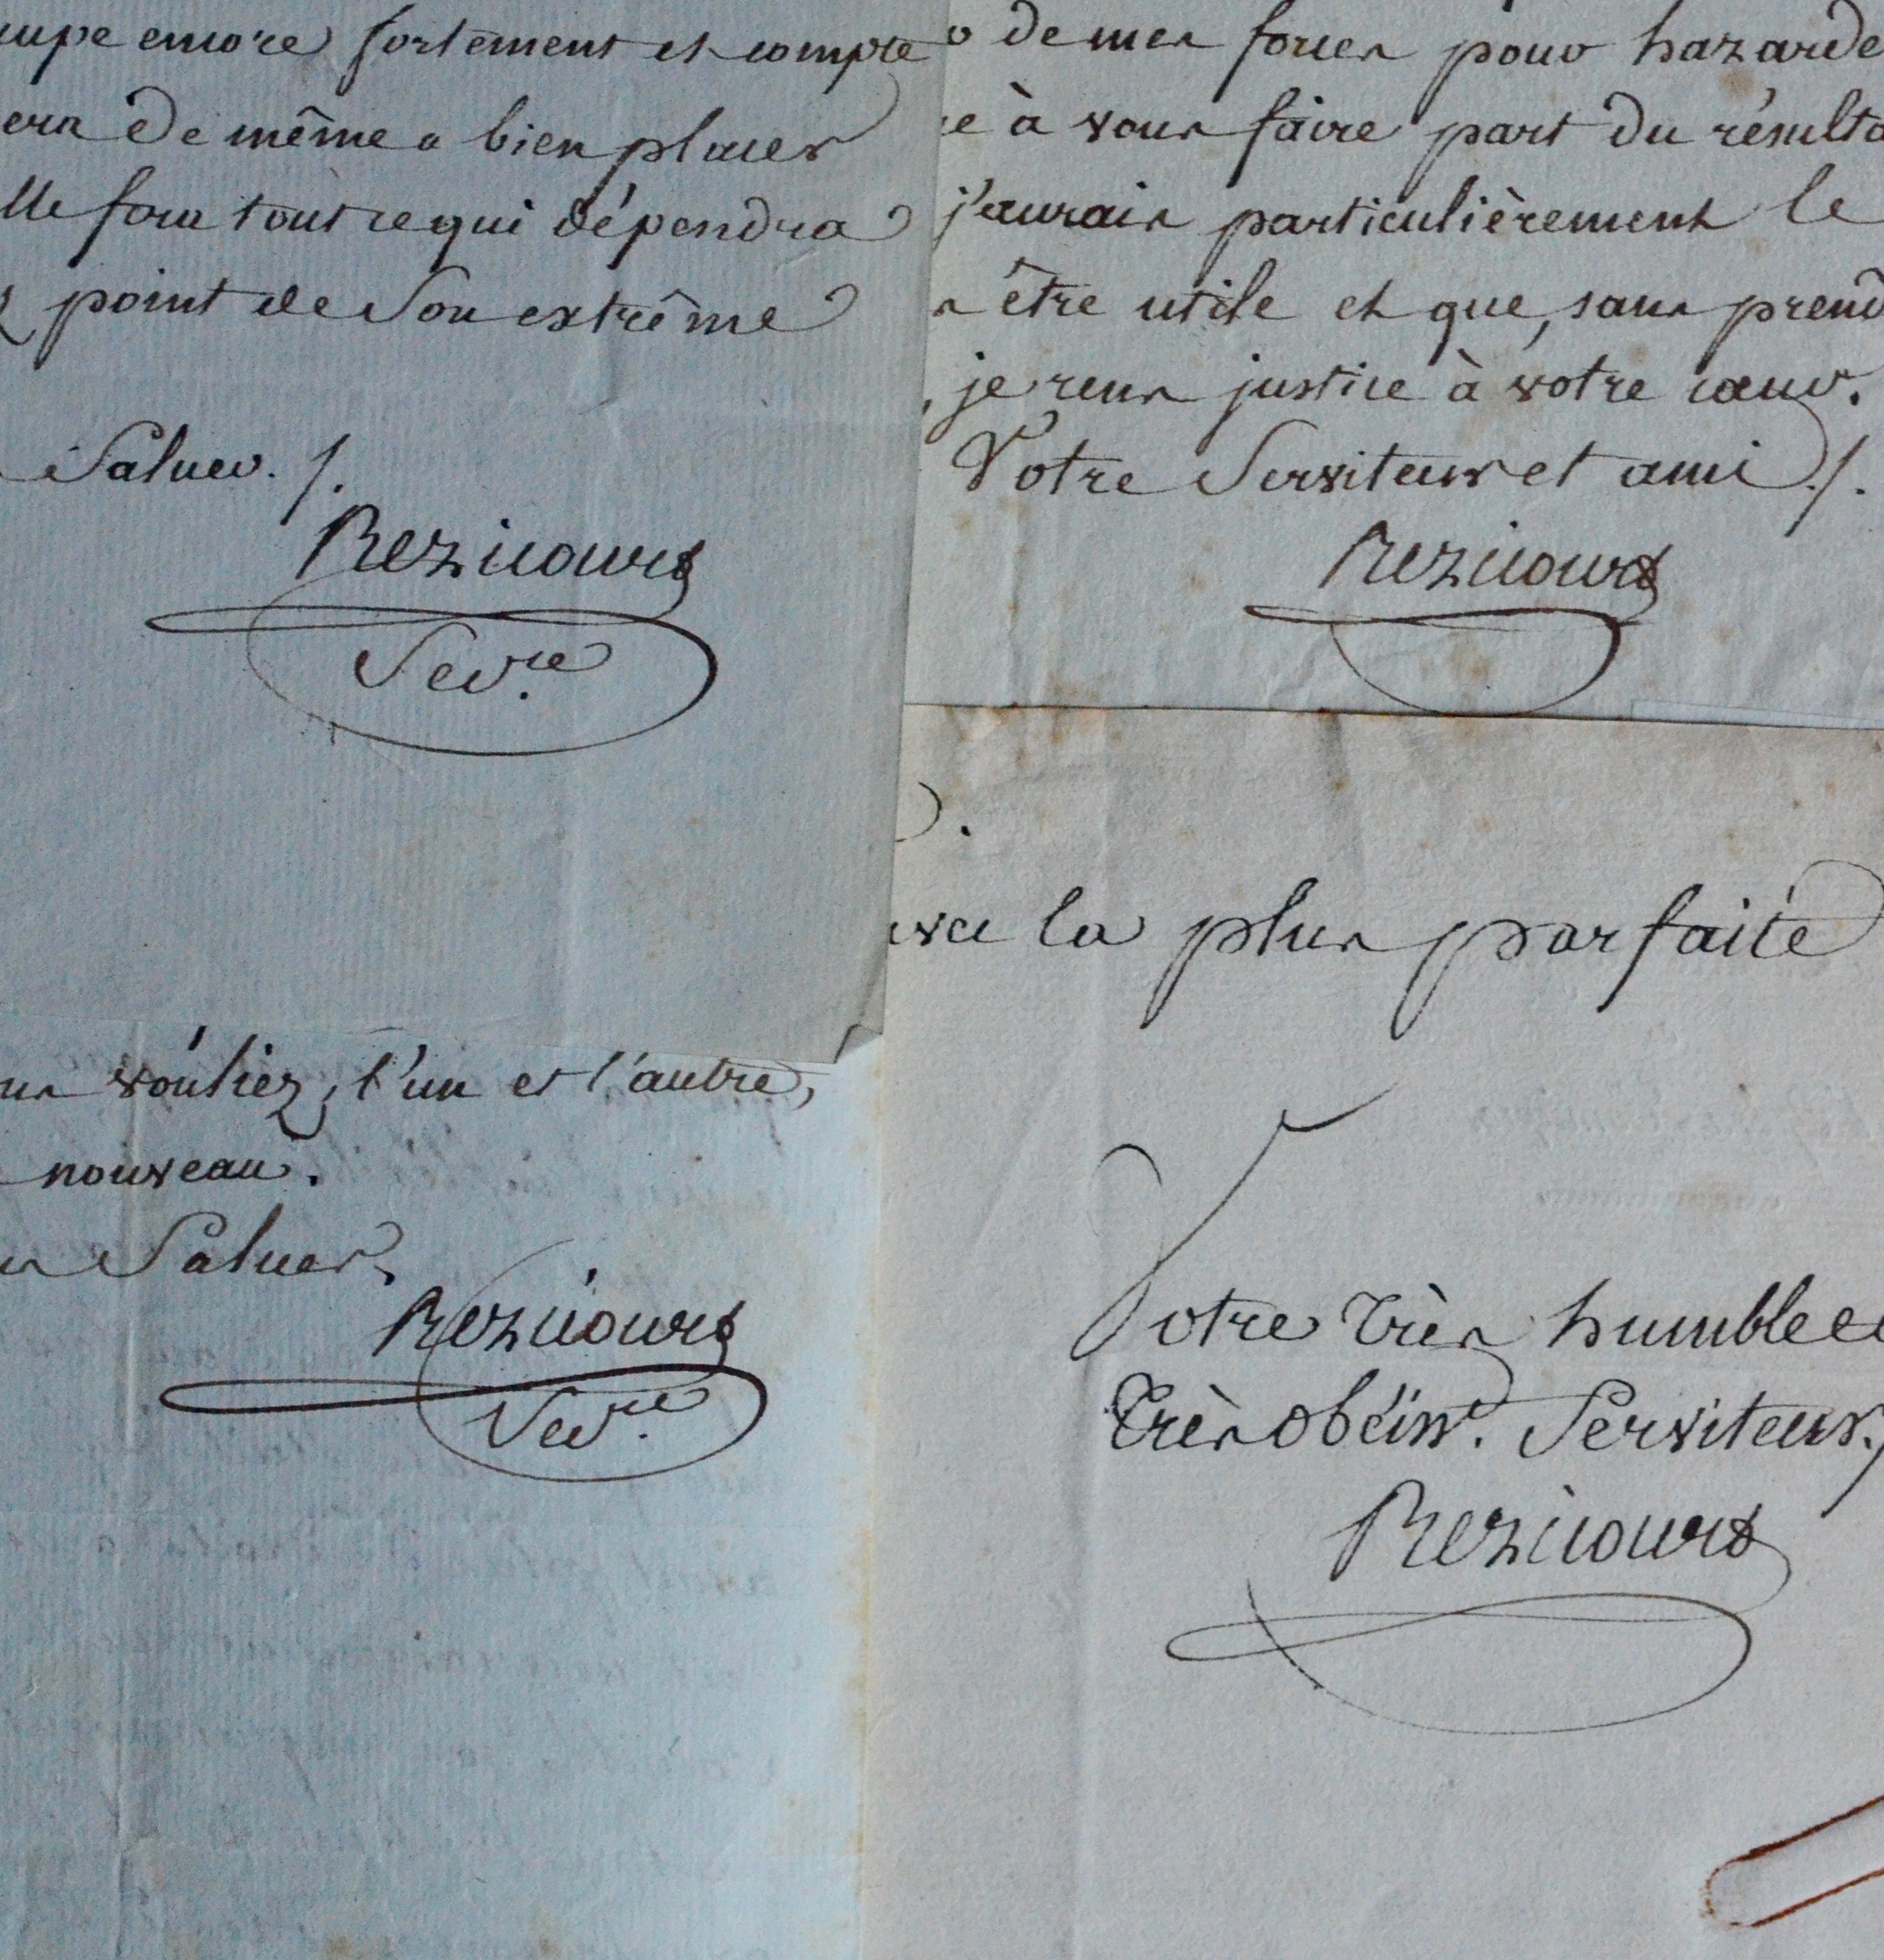 encore fortement et compte
de même a bien placer
fera tout ce qui dépendra
point de Son extrême
Saluer ./.
Rezicourt
Secre.
de mes forces pour hazarde
à vous faire part du résulta
j'aurais particulièrement le
être utile et que, sans prend
je rens justice à votre cœur.
Votre Serviteur et ami ./.
Rezicourt
la plus parfaite
Votre très humble et
très obéisst. Serviteur./
Rezicourt
vouliez, l'un et l'autre,
nouveau.
Saluer.
Rezicourt
Secre.